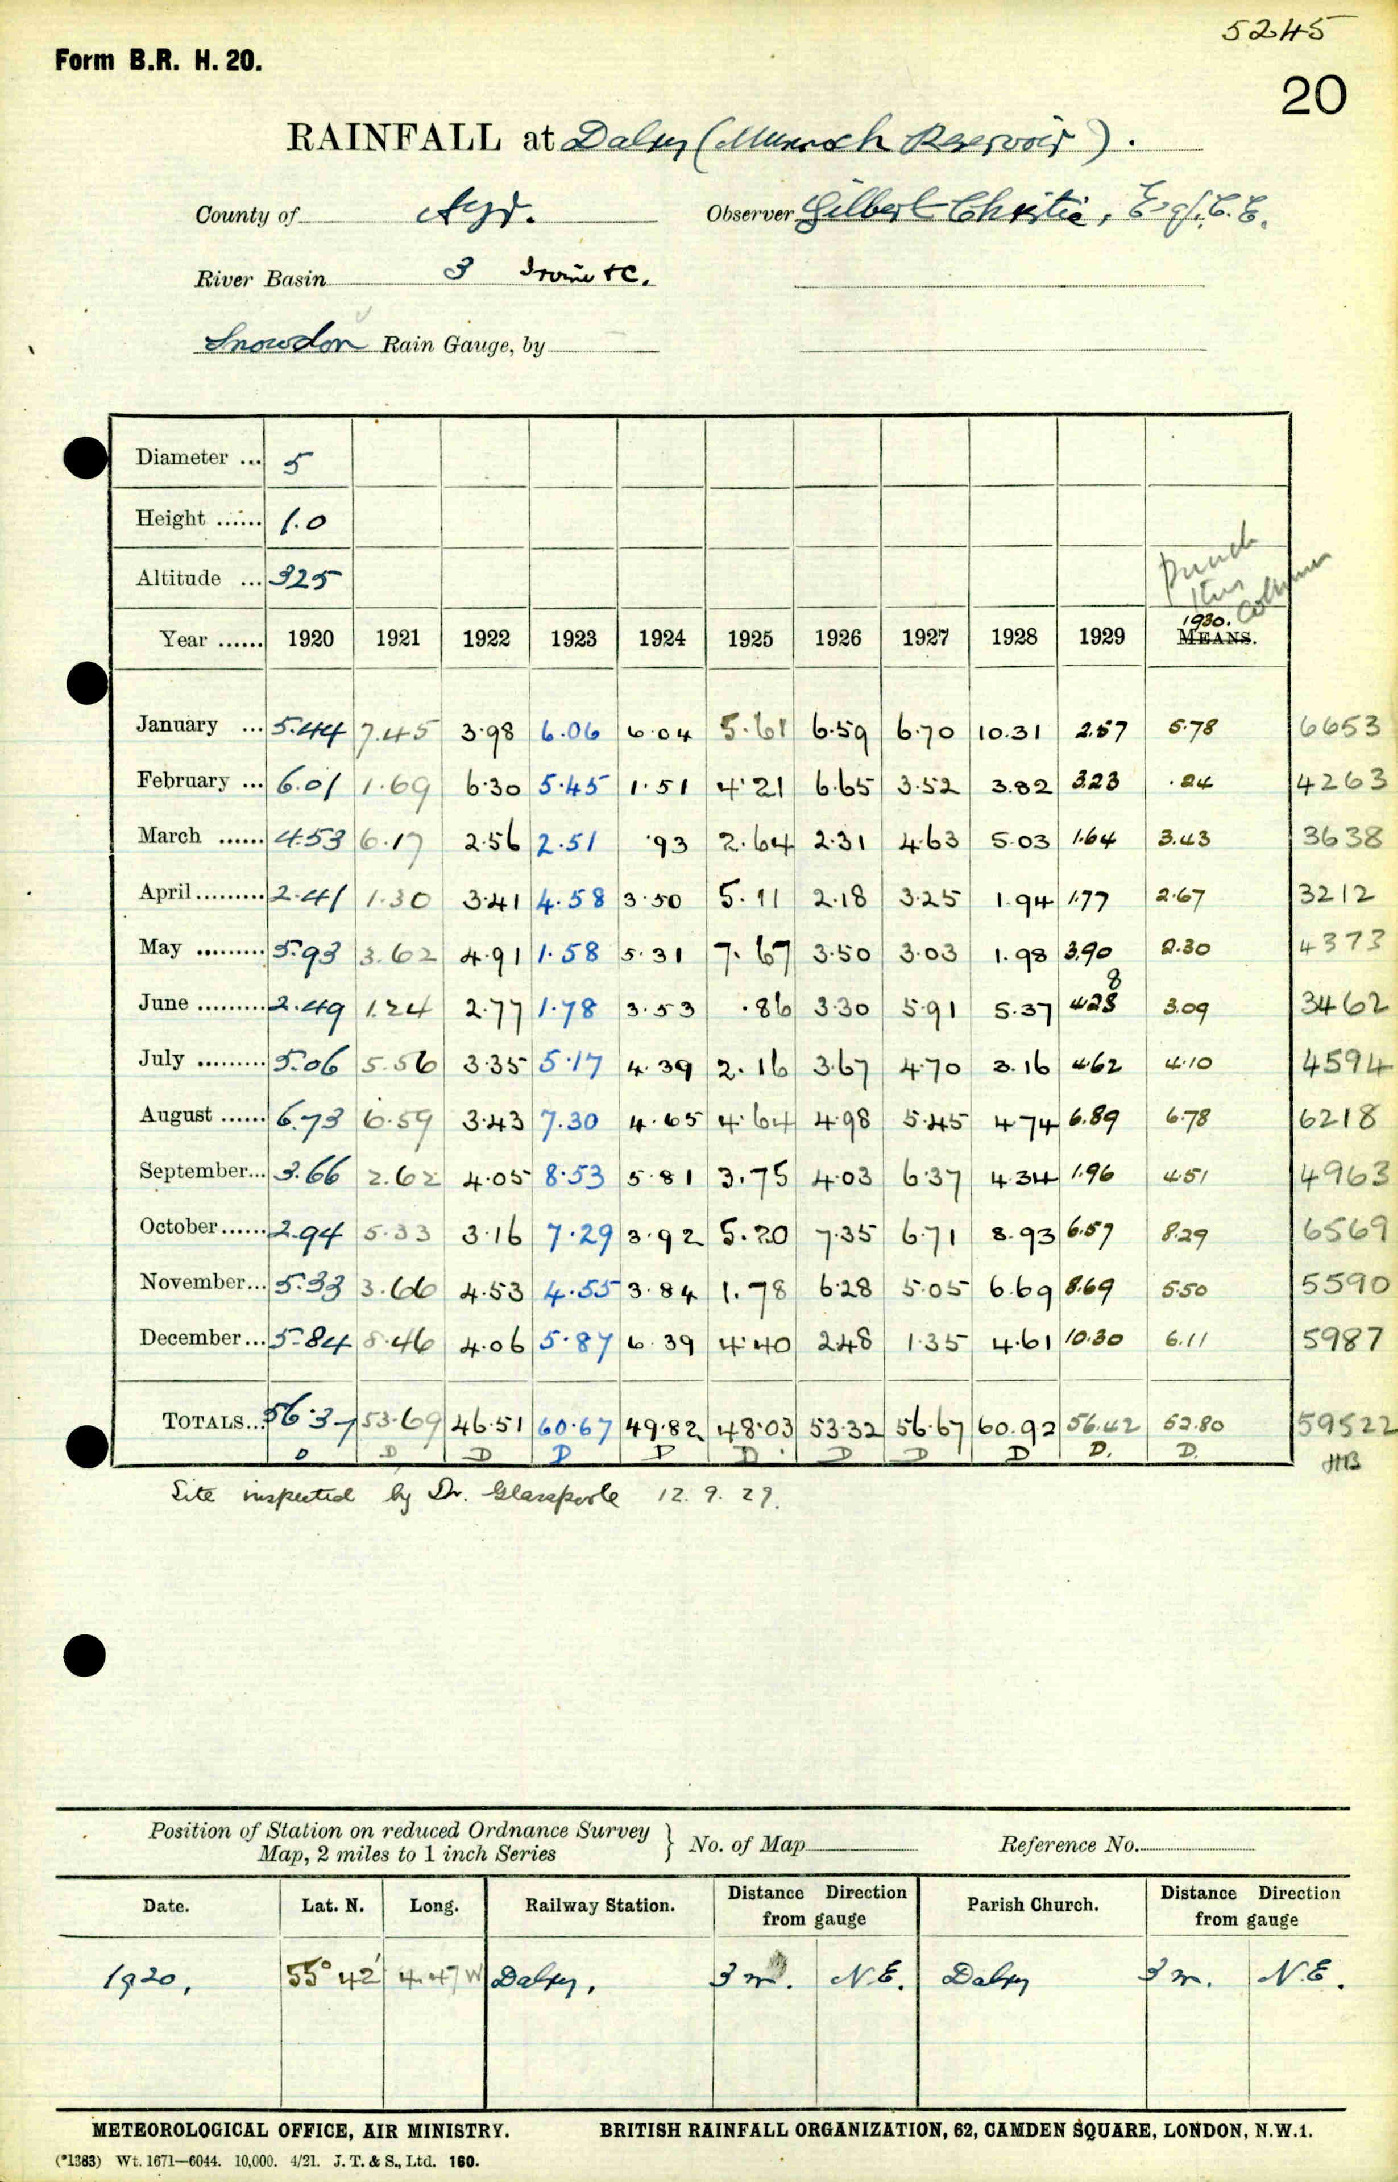 5245
Form B.R. H. 20.
20
RAINFALL at Dalry (Munnoch Reservoir).
County of Ayr. Observer Gilbert Christie, Esq., C.E.
River Basin 3 Irvine &C.
Snowdon Rain Gauge, by
Diameter ... 5
Height ...... 1.0
Altitude ... 325
Punch this column
1930.
Year ...... 1920 1921 1922 1923 1924 1925 1926 1927 1928 1929 MEANS.
January ... 5.44 7.45 3.98 6.06 6.04 5.61 6.59 6.70 10.31 2.57 5.78 6653
February ... 6.01 1.69 6.30 5.45 1.51 4.21 6.65 3.52 3.82 3.23 .24 4263
March ...... 4.53 6.17 2.56 2.51 .93 2.64 2.31 4.63 5.03 1.64 3.43 3638
April ......... 2.41 1.30 3.41 4.58 3.50 5.11 2.18 3.25 1.94 1.77 2.67 3212
May ......... 5.93 3.62 4.91 1.58 5.31 7.67 3.50 3.03 1.98 3.90 2.30 4373
June ......... 2.49 1.24 2.77 1.78 3.53 .86 3.30 5.91 5.37 4.28 8 3.09 3462
July ......... 5.06 5.56 3.35 5.17 4.39 2.16 3.67 4.70 3.16 4.62 4.10 4594
August ...... 6.73 6.59 3.43 7.30 4.65 4.64 4.98 5.45 4.74 6.89 6.78 6218
September... 3.66 2.62 4.05 8.53 5.81 3.75 4.03 6.37 4.34 1.96 4.51 4963
October...... 2.94 5.33 3.16 7.29 3.92 5.20 7.35 6.71 8.93 6.57 8.29 6569
November... 5.33 3.66 4.53 4.55 3.84 1.78 6.28 5.05 6.69 8.69 5.50 5590
December... 5.84 8.46 4.06 5.87 6.39 4.40 2.48 1.35 4.61 10.30 6.11 5987
TOTALS... 56.37 53.69 46.51 60.67 49.82 48.03 53.32 56.67 60.92 56.42 52.80 59522
D D D D D D D D D D. D. HB
Site inspected by Dr. Glasspoole 12. 9. 27.
Position of Station on reduced Ordnance Survey
Map, 2 miles to 1 inch Series } No. of Map Reference No.
Date. Lat. N. Long. Railway Station. Distance Direction from gauge Parish Church. Distance Direction from gauge
1920, 55° 42' 4.47 W Dalry, 3 m. N.E. Dalry 3 m. N.E.
METEOROLOGICAL OFFICE, AIR MINISTRY. BRITISH RAINFALL ORGANIZATION, 62, CAMDEN SQUARE, LONDON, N.W.1.
(*1383) Wt. 1671—6044. 10,000. 4/21. J. T. & S., Ltd. 160.